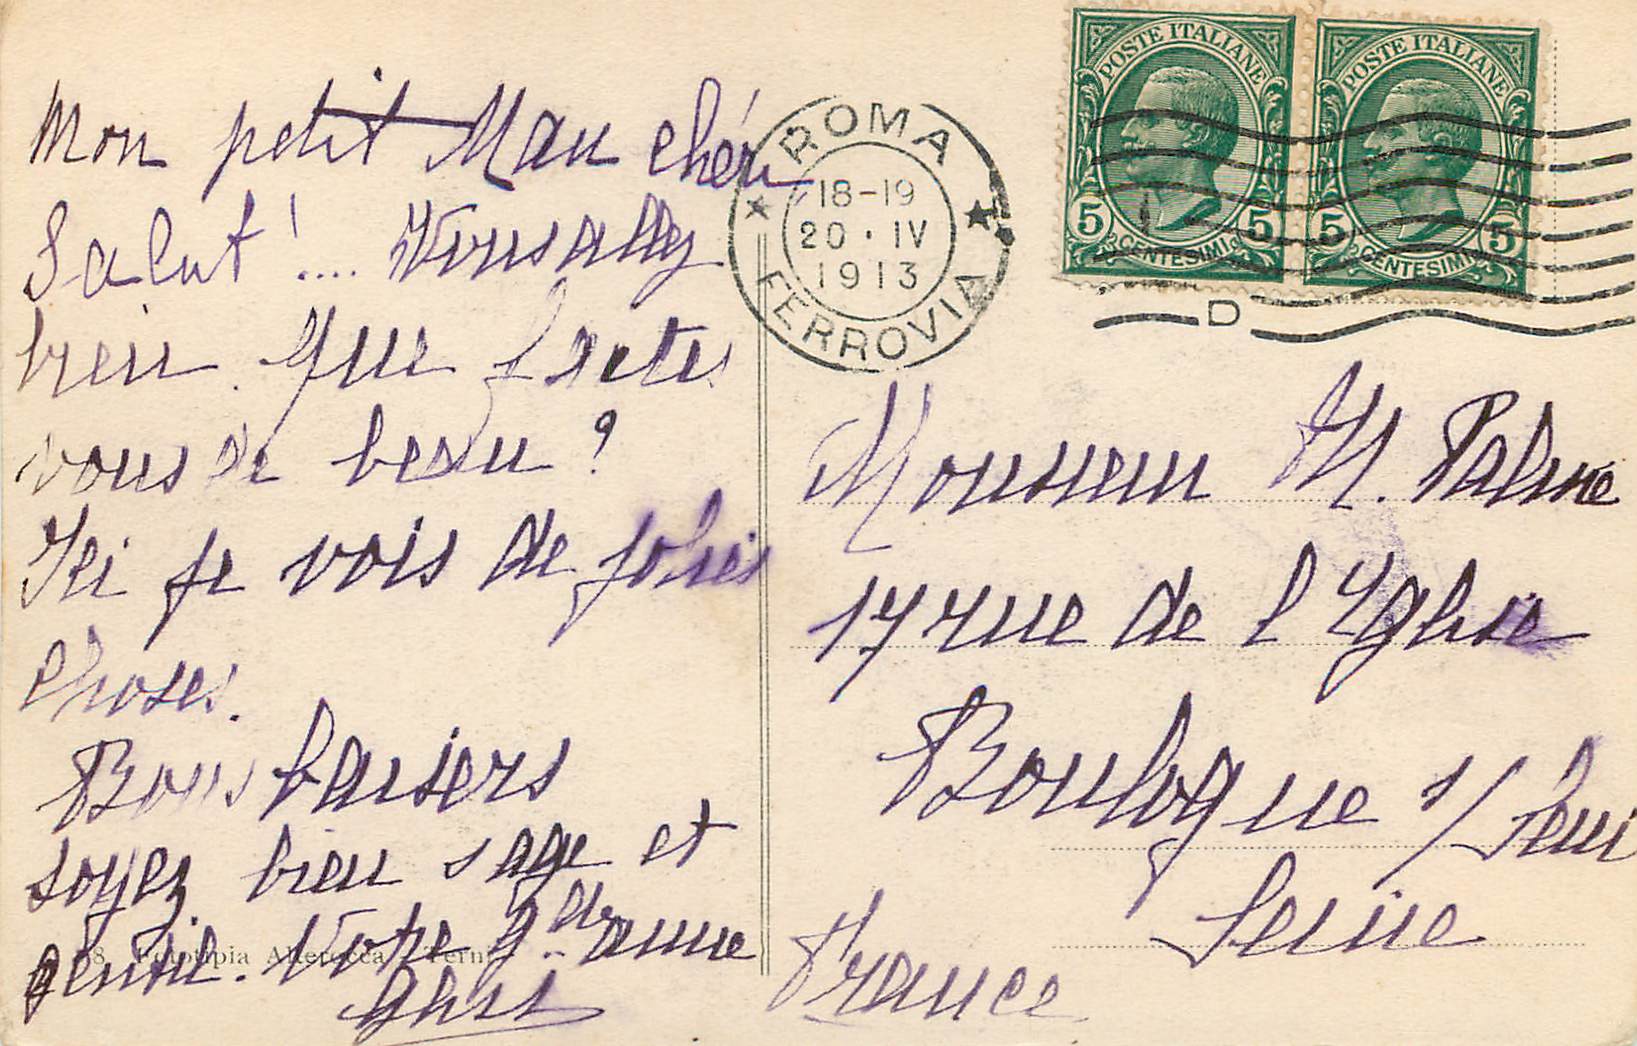 Mon petit Mau chéri
Salut ! ....
bien. Que faites
vous de beau ?
Ici je vois de jolies
choses.
Bons baisers
soyez bien sage et
gentil. Votre gde amie
Fototipia Alterocca - Terni
ROMA
18-19
20 · IV
1913
FERROVIA
POSTE ITALIANE
5 5
CENTESIMI
POSTE ITALIANE
5 5
CENTESIMI
D
Monsieur M. Palme
17 rue de l Eglise
Boulogne s/ Seine
Seine
France